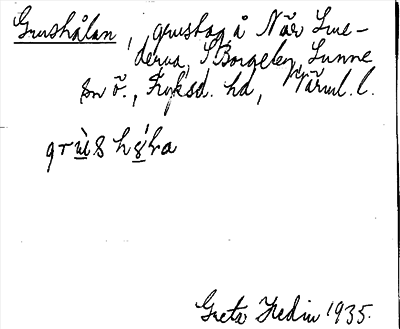 Grushålan, grustag å När Sme-
derud, S Borgeby, Sunne
sn ö., Fryksd. hd, Värml. l.
grùs hʹå̱la
Greta Hedin 1935.